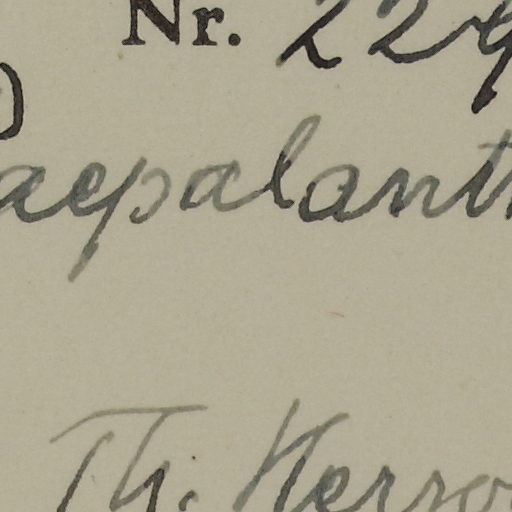 Nr. 229
)
aepalanth
Th. Herzo